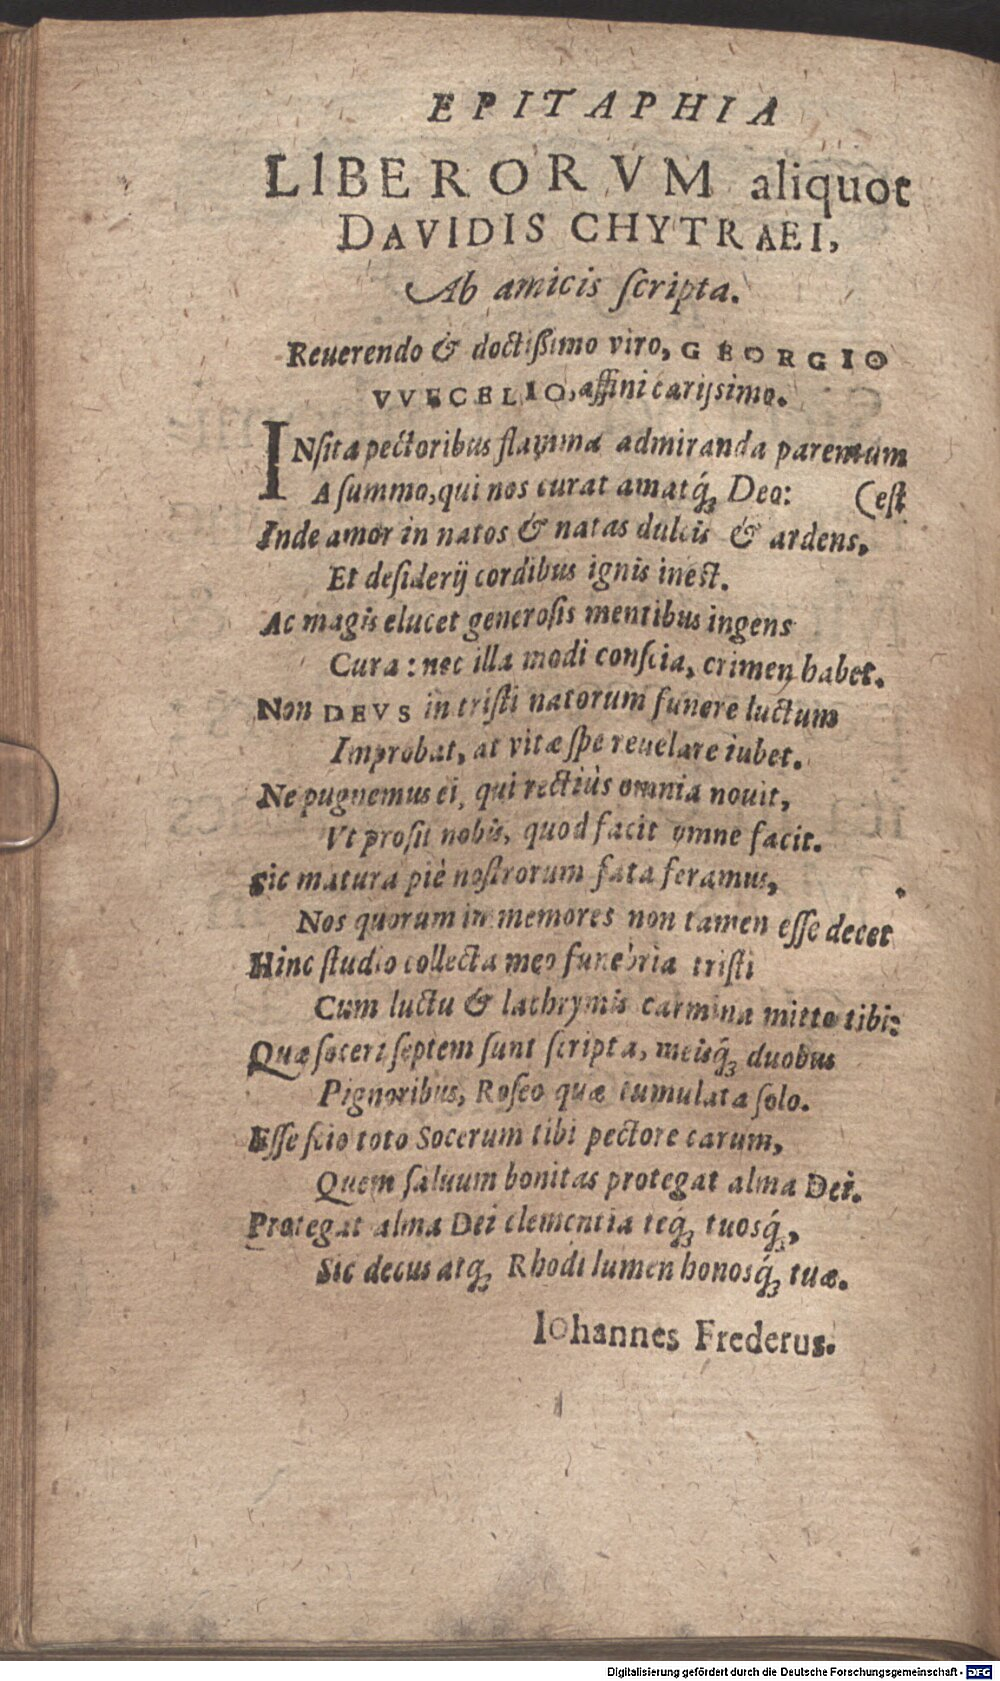 EPITAPHIA
LIBERORVM aliquot
DAVIDIS CHYTRAEI,
Ab amicis ſcripta.
Reuerendo & doctiſsimo viro, GEORGIO
VVECELIO, affini carijsimo.
INſita pectoribus flamma admiranda parentum
A ſummo, qui nos curat amatq́ꝫ Deo: (eſt
Inde amor in natos & natas dulcis & ardens,
Et deſiderij cordibus ignis ineſt.
Ac magis elucet generoſis mentibus ingens
Cura: nec illa modi conſcia, crimen habet.
Non DEVS in triſti natorum funere luctum
Improbat, at vitæ ſpe reuelare iubet.
Ne pugnemus ei, qui rectiùs omnia nouit,
Vt proſit nobis, quod facit omne facit.
Sic matura piè noſtrorum fata feramus,
Nos quorum immemores non tamen eſſe decet
Hinc ſtudio collecta meo funebria triſti
Cum luctu & lachrymis carmina mitto tibi:
Quæ ſoceri ſeptem ſunt ſcripta, meisq́ꝫ duobus
Pignoribus, Roſeo quæ tumulata ſolo.
Eſſe ſcio toto Socerum tibi pectore carum,
Quem ſaluum bonitas protegat alma Dei.
Protegat alma Dei clementia teq́ꝫ tuosq́ꝫ,
Sic decus atqꝫ Rhodi lumen honosq́ꝫ tuæ.
Iohannes Frederus.
Digitalisierung gefördert durch die Deutsche Forschungsgemeinschaft - DFG